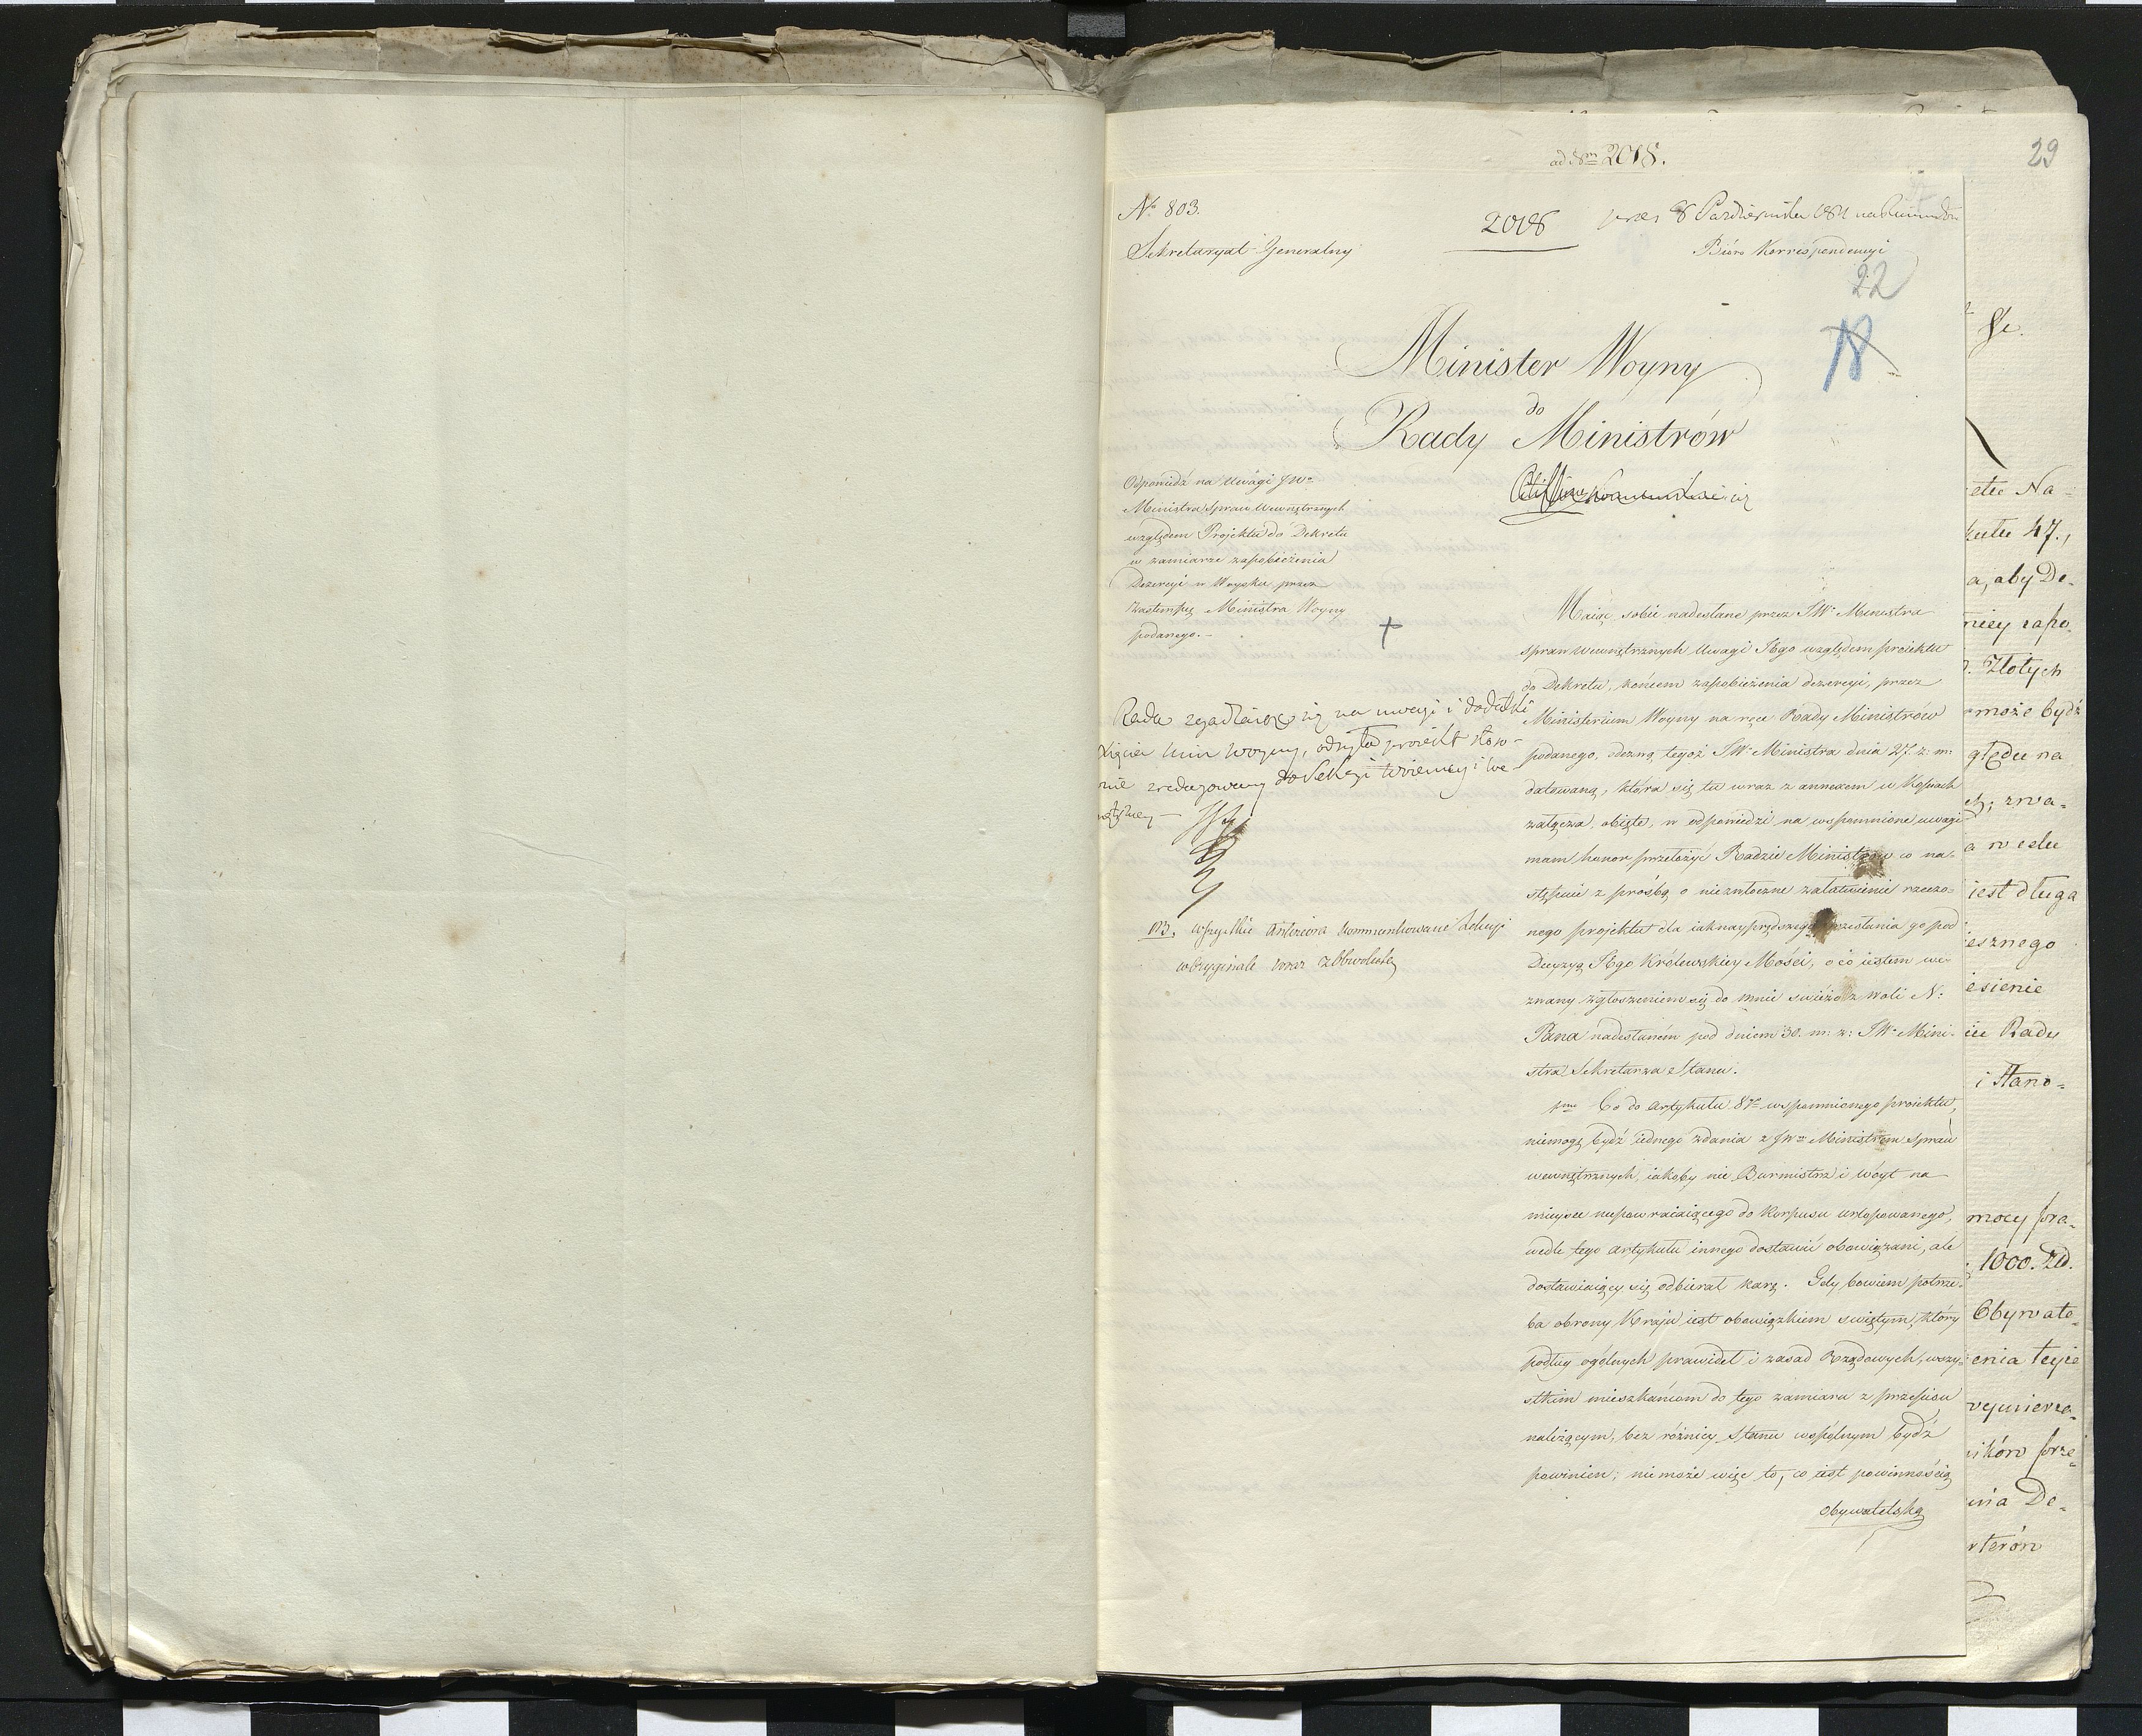 ad Num 2018.
29
No 803.
2018
pres 8 Października 1811
Sekretaryat Generalny
Biuro Korrespondencyi
22
18
Minister Woyny
do
Rady Ministrów
Odpowiedź na Uwagi JWo
Ministra Spraw Wewnętrznych
względem Projektu do Dekretu
w zamiarze zapobieżenia
Dezercyi w Woysku przez
Zastempcę Ministra Woyny
podanego.-
Rada zgadzaiąc się na uwagi i dodatki
Xięcia Min Woyny, odsyła proiekt
nie zredagowany do Sekcyi Woienney i We
wnętrzney —
NB. wszystkie Anteriora kommunikowane Sekcyi
w Oryginale wraz z Obwolutą
Maiąc sobie nadesłane przez JWo Ministra
spraw Wewnętrznych Uwagi Jego względem proiektu
do Dekretu, końcem zapobieżenia dezercyi, przez
Ministerium Woyny na ręce Rady Ministrów
podanego, odezwą tegoż JWo Ministra dnia 27. z: m:
datowaną, która się tu wraz z annexem w Kopiach
załącza, obięte, w odpowiedzi na wspomnione uwagi
mam honor przełożyć Radzie Ministrów co na-
stępuie z prośbą o niezwłoczne załatwienie rzeczo-
nego projektu dla iaknayprędszego przesłania go pod
Decyzyą Jego Królewskiey Mości, o co iestem we-
zwany zgłoszeniem się do mnie swieżo z woli N:
Pana nadesłaném pod dniem 30. m: z: JWo Mini-
stra Sekretarza Stanu.
pmo Co do Artykułu 8go wspomnionego proiektu,
niemogę bydź iednego zdania z JWm Ministrem Spraw
wewnętrznych, iakoby nie Burmistrz i Wóyt na
mieysce niepowracaiącego do Korpusu urlopowanego,
wedle tego Artykułu innego dostawić obowiązani, ale
dostawiaiący się odbierał karę. Gdy bowiem potrze-
ba obrony Kraju iest obowiązkiem swiętym, który
podług ogólnych prawideł i zasad Rządowych, wszy-
stkim mieszkańcom do tego zamiaru z przepisu
należącym, bez różnicy Stanu wspólnym bydź
powinien; nie może więc to, co iest powinnością
obywatelską
etu Na-
kułu 47.,
a, aby De-
niey zapo
Złotych
może bydź
ględu na
zwa-
a w celu
iest długa
iesznego
esienie
Rady
i Stano-
mocy pra-
1000. Zł.
Obywate-
enia teyże
ików prze-
nia De-
rterów